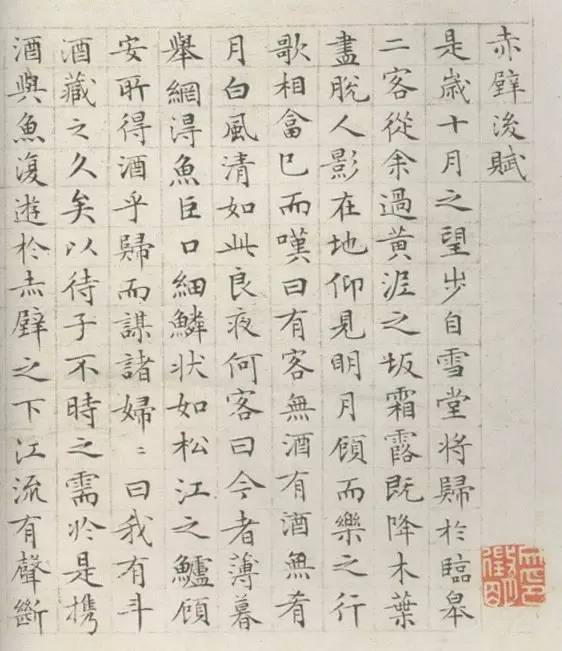 赤壁後賦
是歲十月之望步自雪堂將歸於臨皋
二客從余過黃泥之坂霜露既降木葉
盡脫人影在地仰見明月顧而樂之行
歌相畣已而嘆曰有客無酒有酒無肴
月白風清如此良夜何客曰今者薄暮
舉網得魚巨口細鱗狀如松江之鱸顧
安所得酒乎歸而謀諸婦〻曰我有斗
酒藏之久矣以待子不時之需於是攜
酒與魚復遊於赤壁之下江流有聲斷